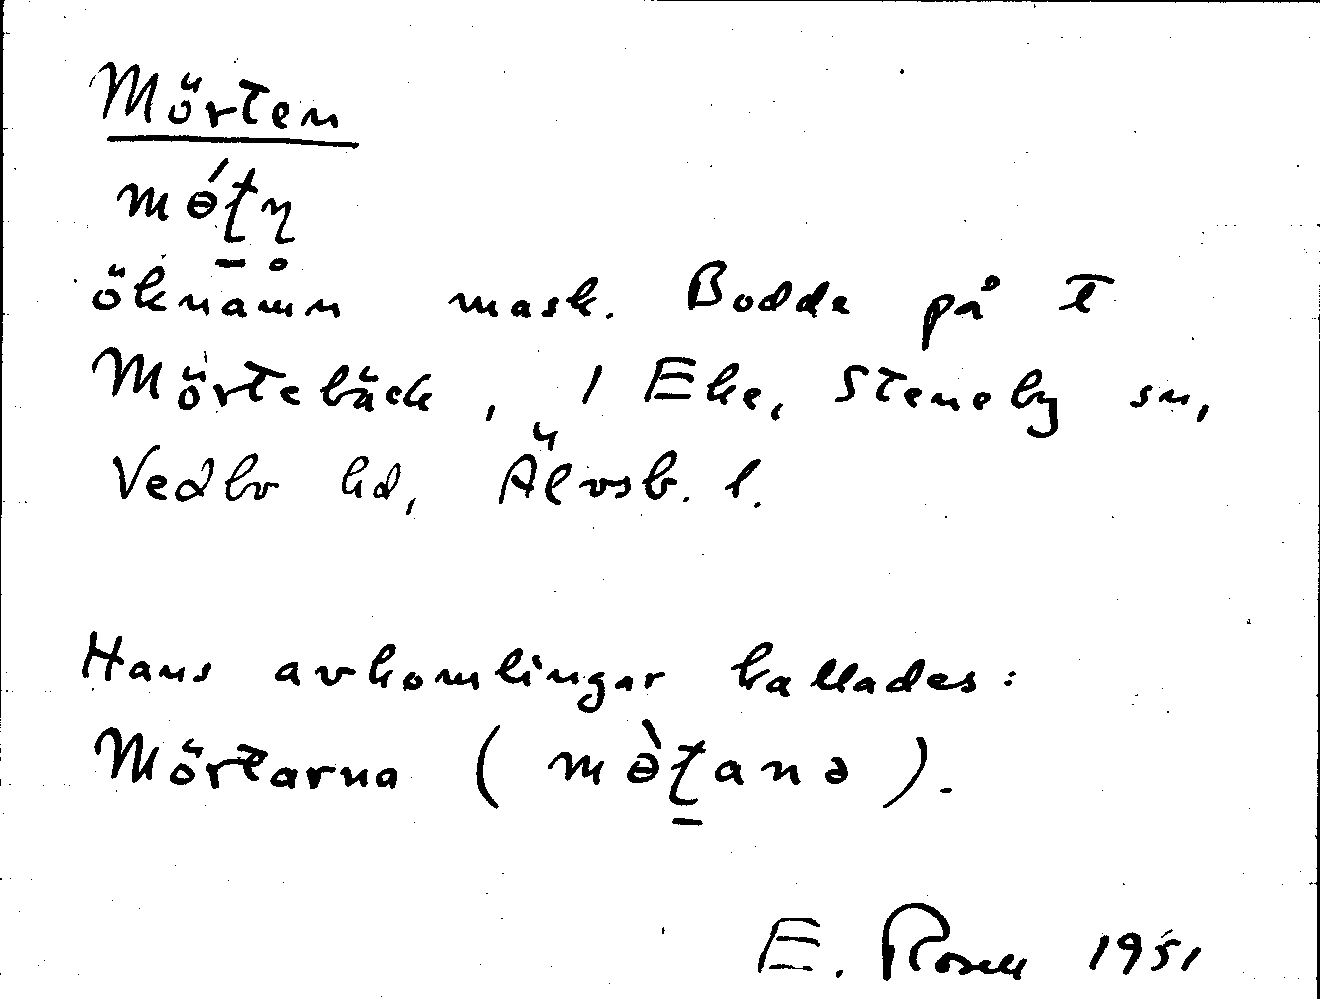 Mörten
mɵ́ʈɳ̥
öknamn mask. Bodde på t
Mörtebäck, 1 Eke, Steneby sn,
Vedbo hd, Älvsb. l.
Hans avkomlingar kallades:
Mörtarna (mɵ̀ʈanə).
E. Rosell 1951